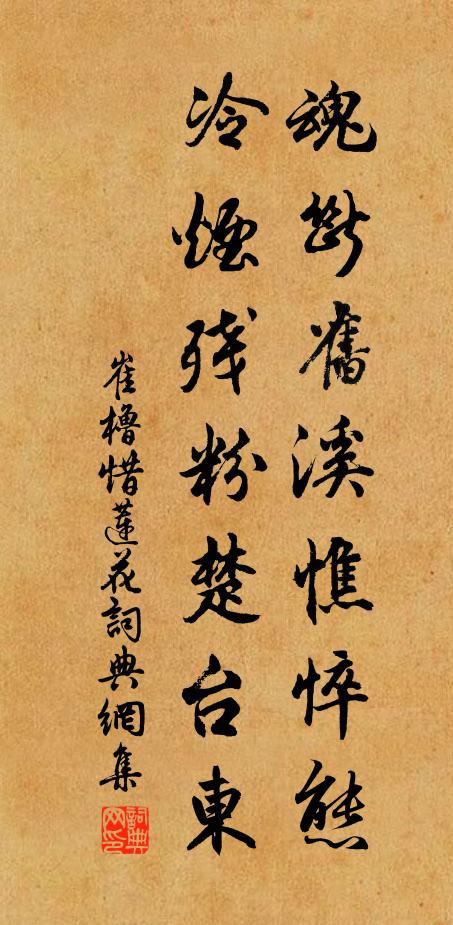 魂斷舊溪憔悴態
冷煙殘粉楚台東
崔櫓惜蓮花詞典網集
詞典网印